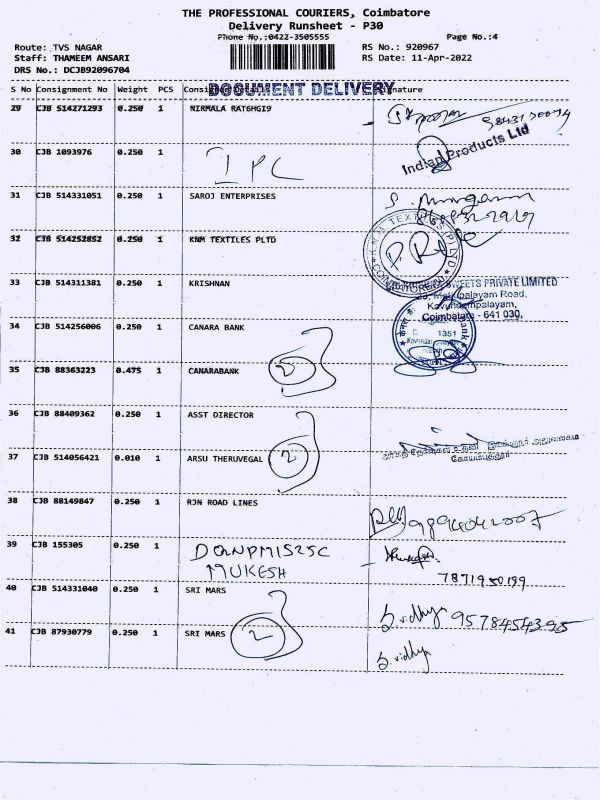 THE PROFESSIONAL COURIERS, Coimbatore
Delivery Runsheet - P30
Phone No,:0422-3505555
Page No.:4
Route: TVS NAGAR
RS No.: 920967
Staff: THAMEEM ANSARI
RS Date: 11-Apr-2022
DRS No.: DCJB92096704
DOCUMENT DELIVERY
S No Consignment No Weight PCS Consignee Details Signature
29 CJB 514271293 0.250 1 NIRMALA RAT6HGI9
30 CJB 1093976 0.250 1 IPC
Indian Products Ltd
31 CJB 514331051 0.250 1 SAROJ ENTERPRISES
S. Murugan
32 CJB 514252852 0.250 1 KNM TEXTILES PLTD
K.N.M TEXTILES (P) LTD
COIMBATORE
33 CJB 514311381 0.250 1 KRISHNAN
SWEETS PRIVATE LIMITED
Palayam Road,
Kavundampalayam,
Coimbatore - 641 030,
34 CJB 514256006 0.250 1 CANARA BANK
1351
35 CJB 88363223 0.475 1 CANARABANK
2
36 CJB 88409362 0.250 1 ASST DIRECTOR
37 CJB 514056421 0.010 1 ARSU THERUVEGAL
2
கோயம்புத்தூர்
38 CJB 88149847 0.250 1 RJN ROAD LINES
9894042007
39 CJB 155305 0.250 1
MUKESH
7871950199
40 CJB 514331040 0.250 1 SRI MARS
S.vidhya 9578454395
41 CJB 87930779 0.250 1 SRI MARS
2
S.vidhya